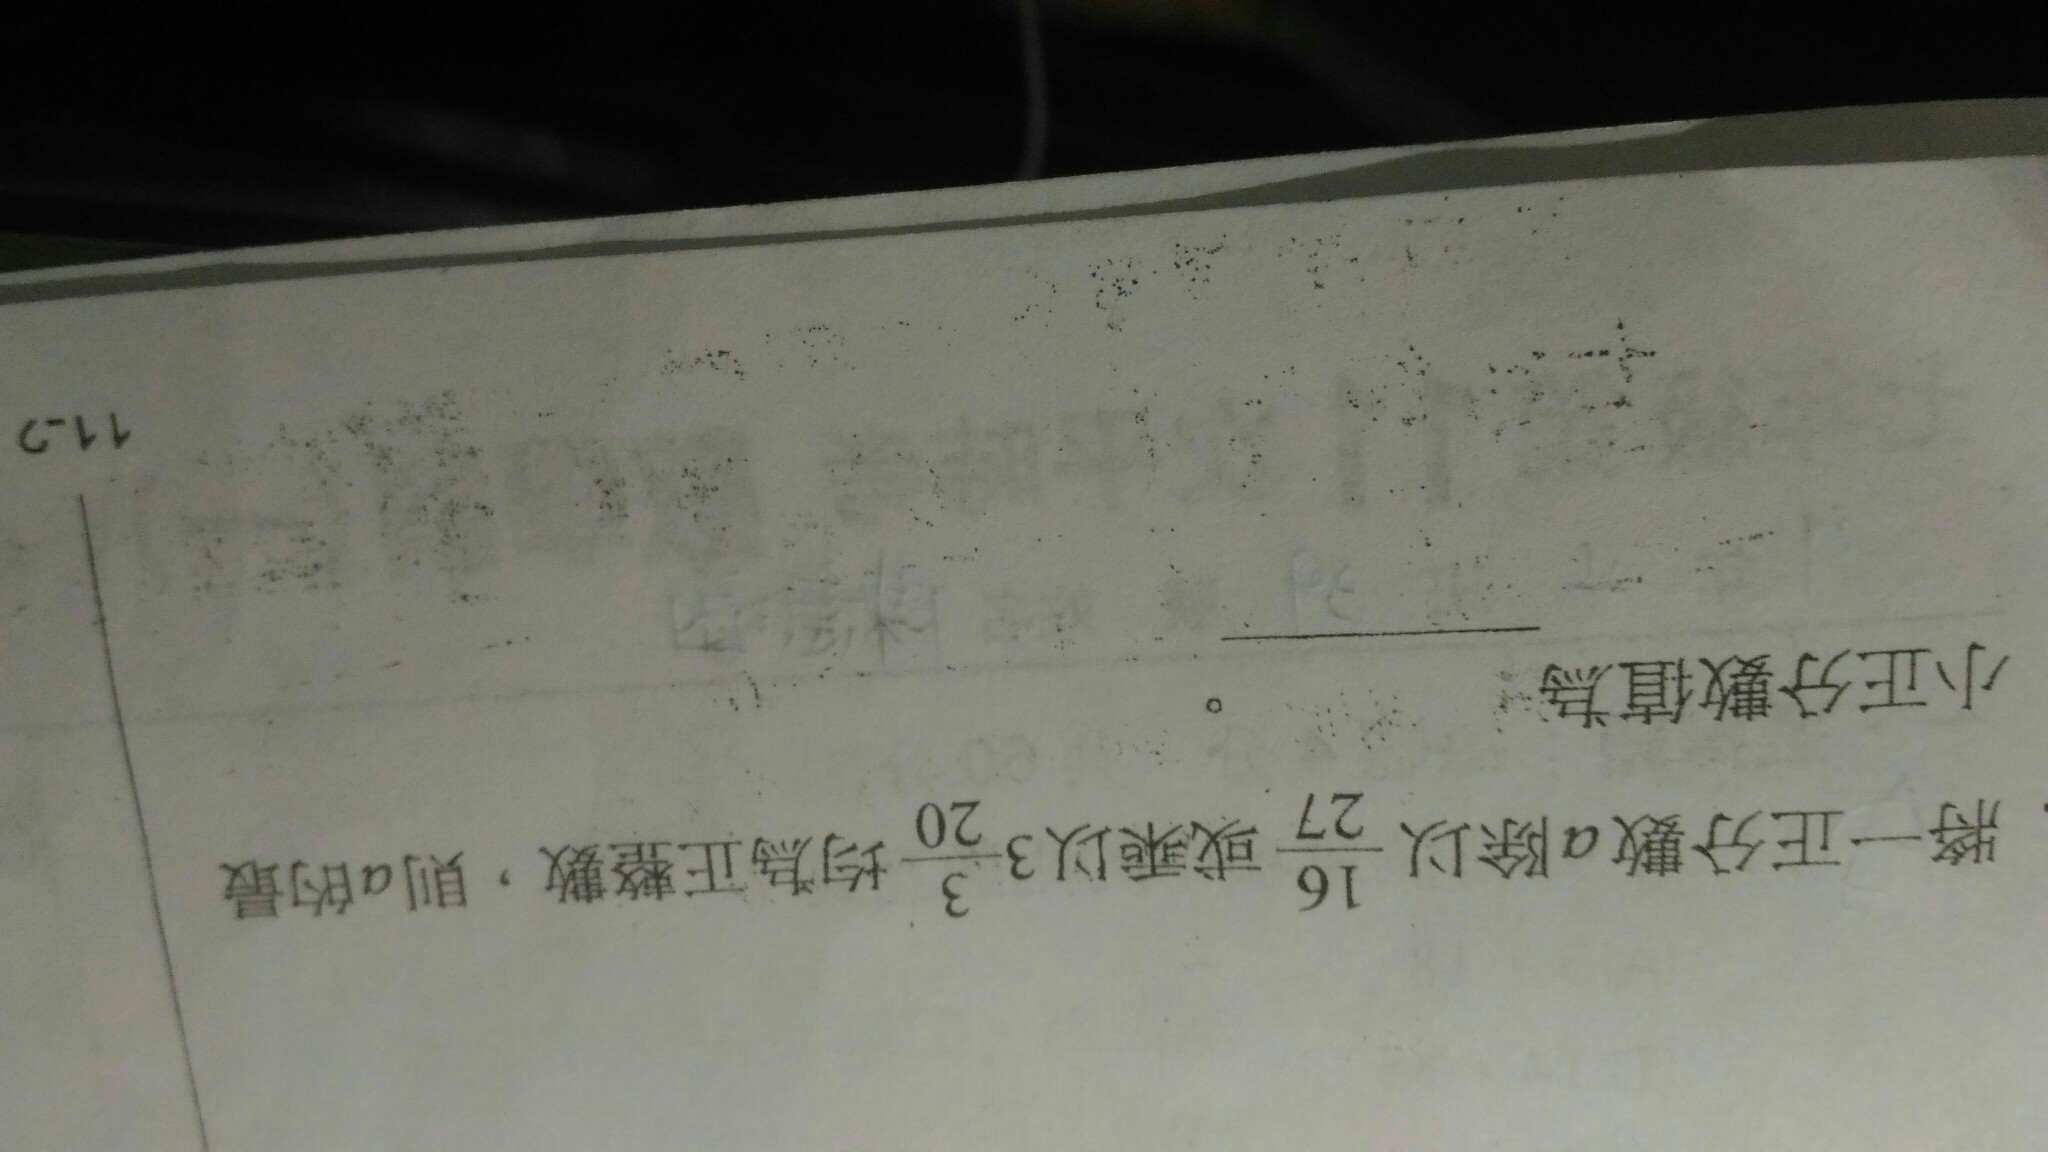 將一正分數a除以16/27或乘以3 3/20均為正整數，則a的最
小正分數值為＿＿＿＿。
11-2